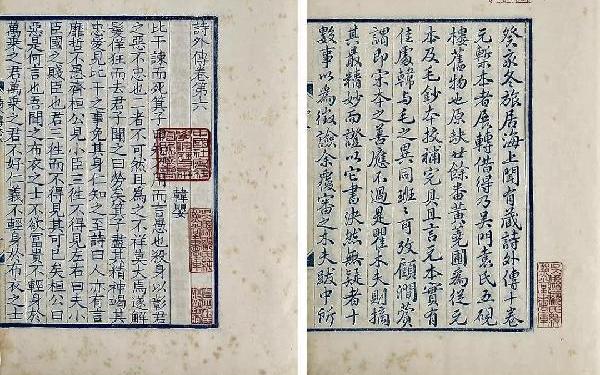 癸亥冬旅居海上聞有藏詩外傳十卷
元槧本者展轉借得乃吳門袁氏五硯
樓舊物也原缺廿餘番黃蕘圃為從元
本及毛鈔本校補完具且言元本實有
佳處韓與毛之異同班〻可攷顧澗薲
謂即宋本之善應不過是瞿木夫則摘
其最精妙而證以它書決然無疑者十
數事以為徵譣余覆審之木夫跋中所
詩外傳卷第六
韓嬰
比干諫而死箕子曰知不用而言愚也殺身以彰君
之惡不忠也二者不可然且為之不祥莫大焉遂解
髮佯狂而去君子聞之曰勞矣箕子盡其精神竭其
忠愛見比干之事免其身仁知之至詩曰人亦有言
靡哲不愚齊桓公見小臣三往不得見左右曰夫小
臣國之賤臣也君三往而不得見其可已矣桓公曰
惡是何言也吾聞之布衣之士不欲富貴不輕身於
萬乘之君萬乘之君不好仁義不輕身於布衣之士